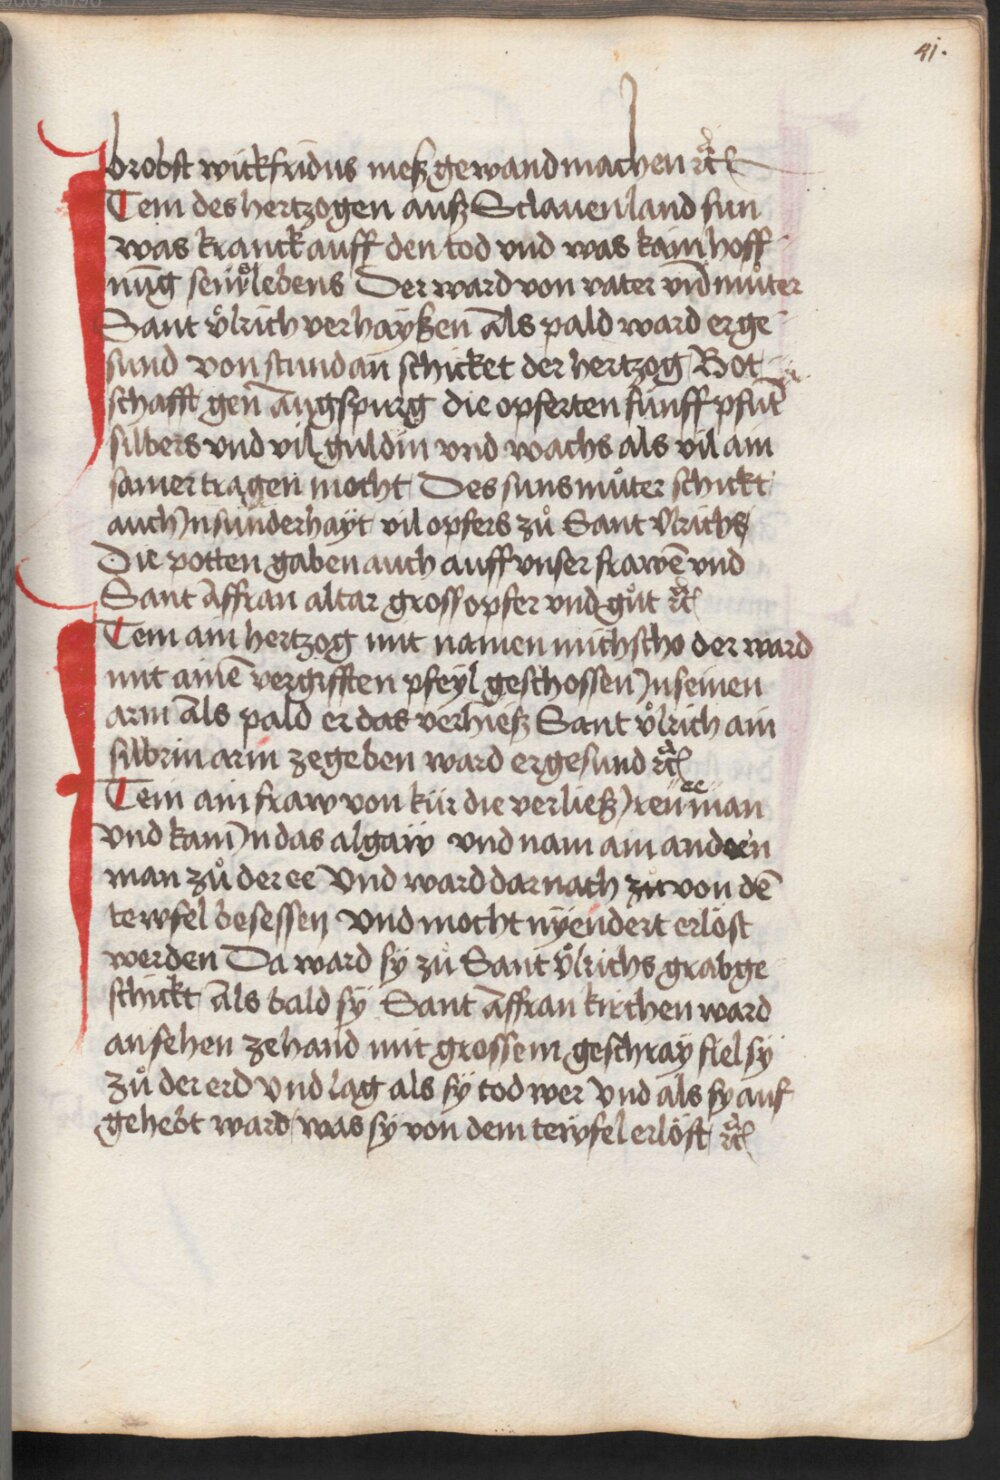 41.
brobst wickfridus meßgewand machen ꝛc̄
Item des hertzogen auß Sclauenland sun
was kranck auff den tod vnd was kain hoff
nūg seins lebens Der ward von vater vnd můter
Sant vͦlrich verhayßen Als pald ward er ge
sund von stund an schicket der hertzog Bot
schafft gen Augspurg die opferten fünff pfūt
silbers vnd vil guldin vnd wachs als vil ain
samer tragen mocht Des suns můter schickt
auch Jn sunderhayt vil opfers zů Sant Vlrichs
Die potten gaben auch auff vnser frawē vnd
Sant Affran altar gross opfer vnd gůt ꝛc̄
Item ain hertzog mit namen michscho der ward
mit ainē vergifften pfeyl geschossen Jn seinen
arm Als pald er das verhieß Sant vͦlrich ain
silbrin arm ze geben ward er gesund ꝛc̄
Item ain fraw von kür die verließ Jren ee man
vnd kam Jn das algaẅ vnd nam ain andern
man zů der ee Vnd ward darnach zů von dē
tewfel besessen Vnd mocht nÿendert erlöst
werden Da ward sÿ zů Sant vͦlrichs grab ge
schickt Als bald sÿ Sant Affran kirchen ward
ansehen zehand mit grossem geschraÿ fiel sÿ
zů der erd Vnd lag als sÿ tod wer Vnd als sy auf
gehebt ward was sÿ von dem teẅfel erlöst ꝛc̄